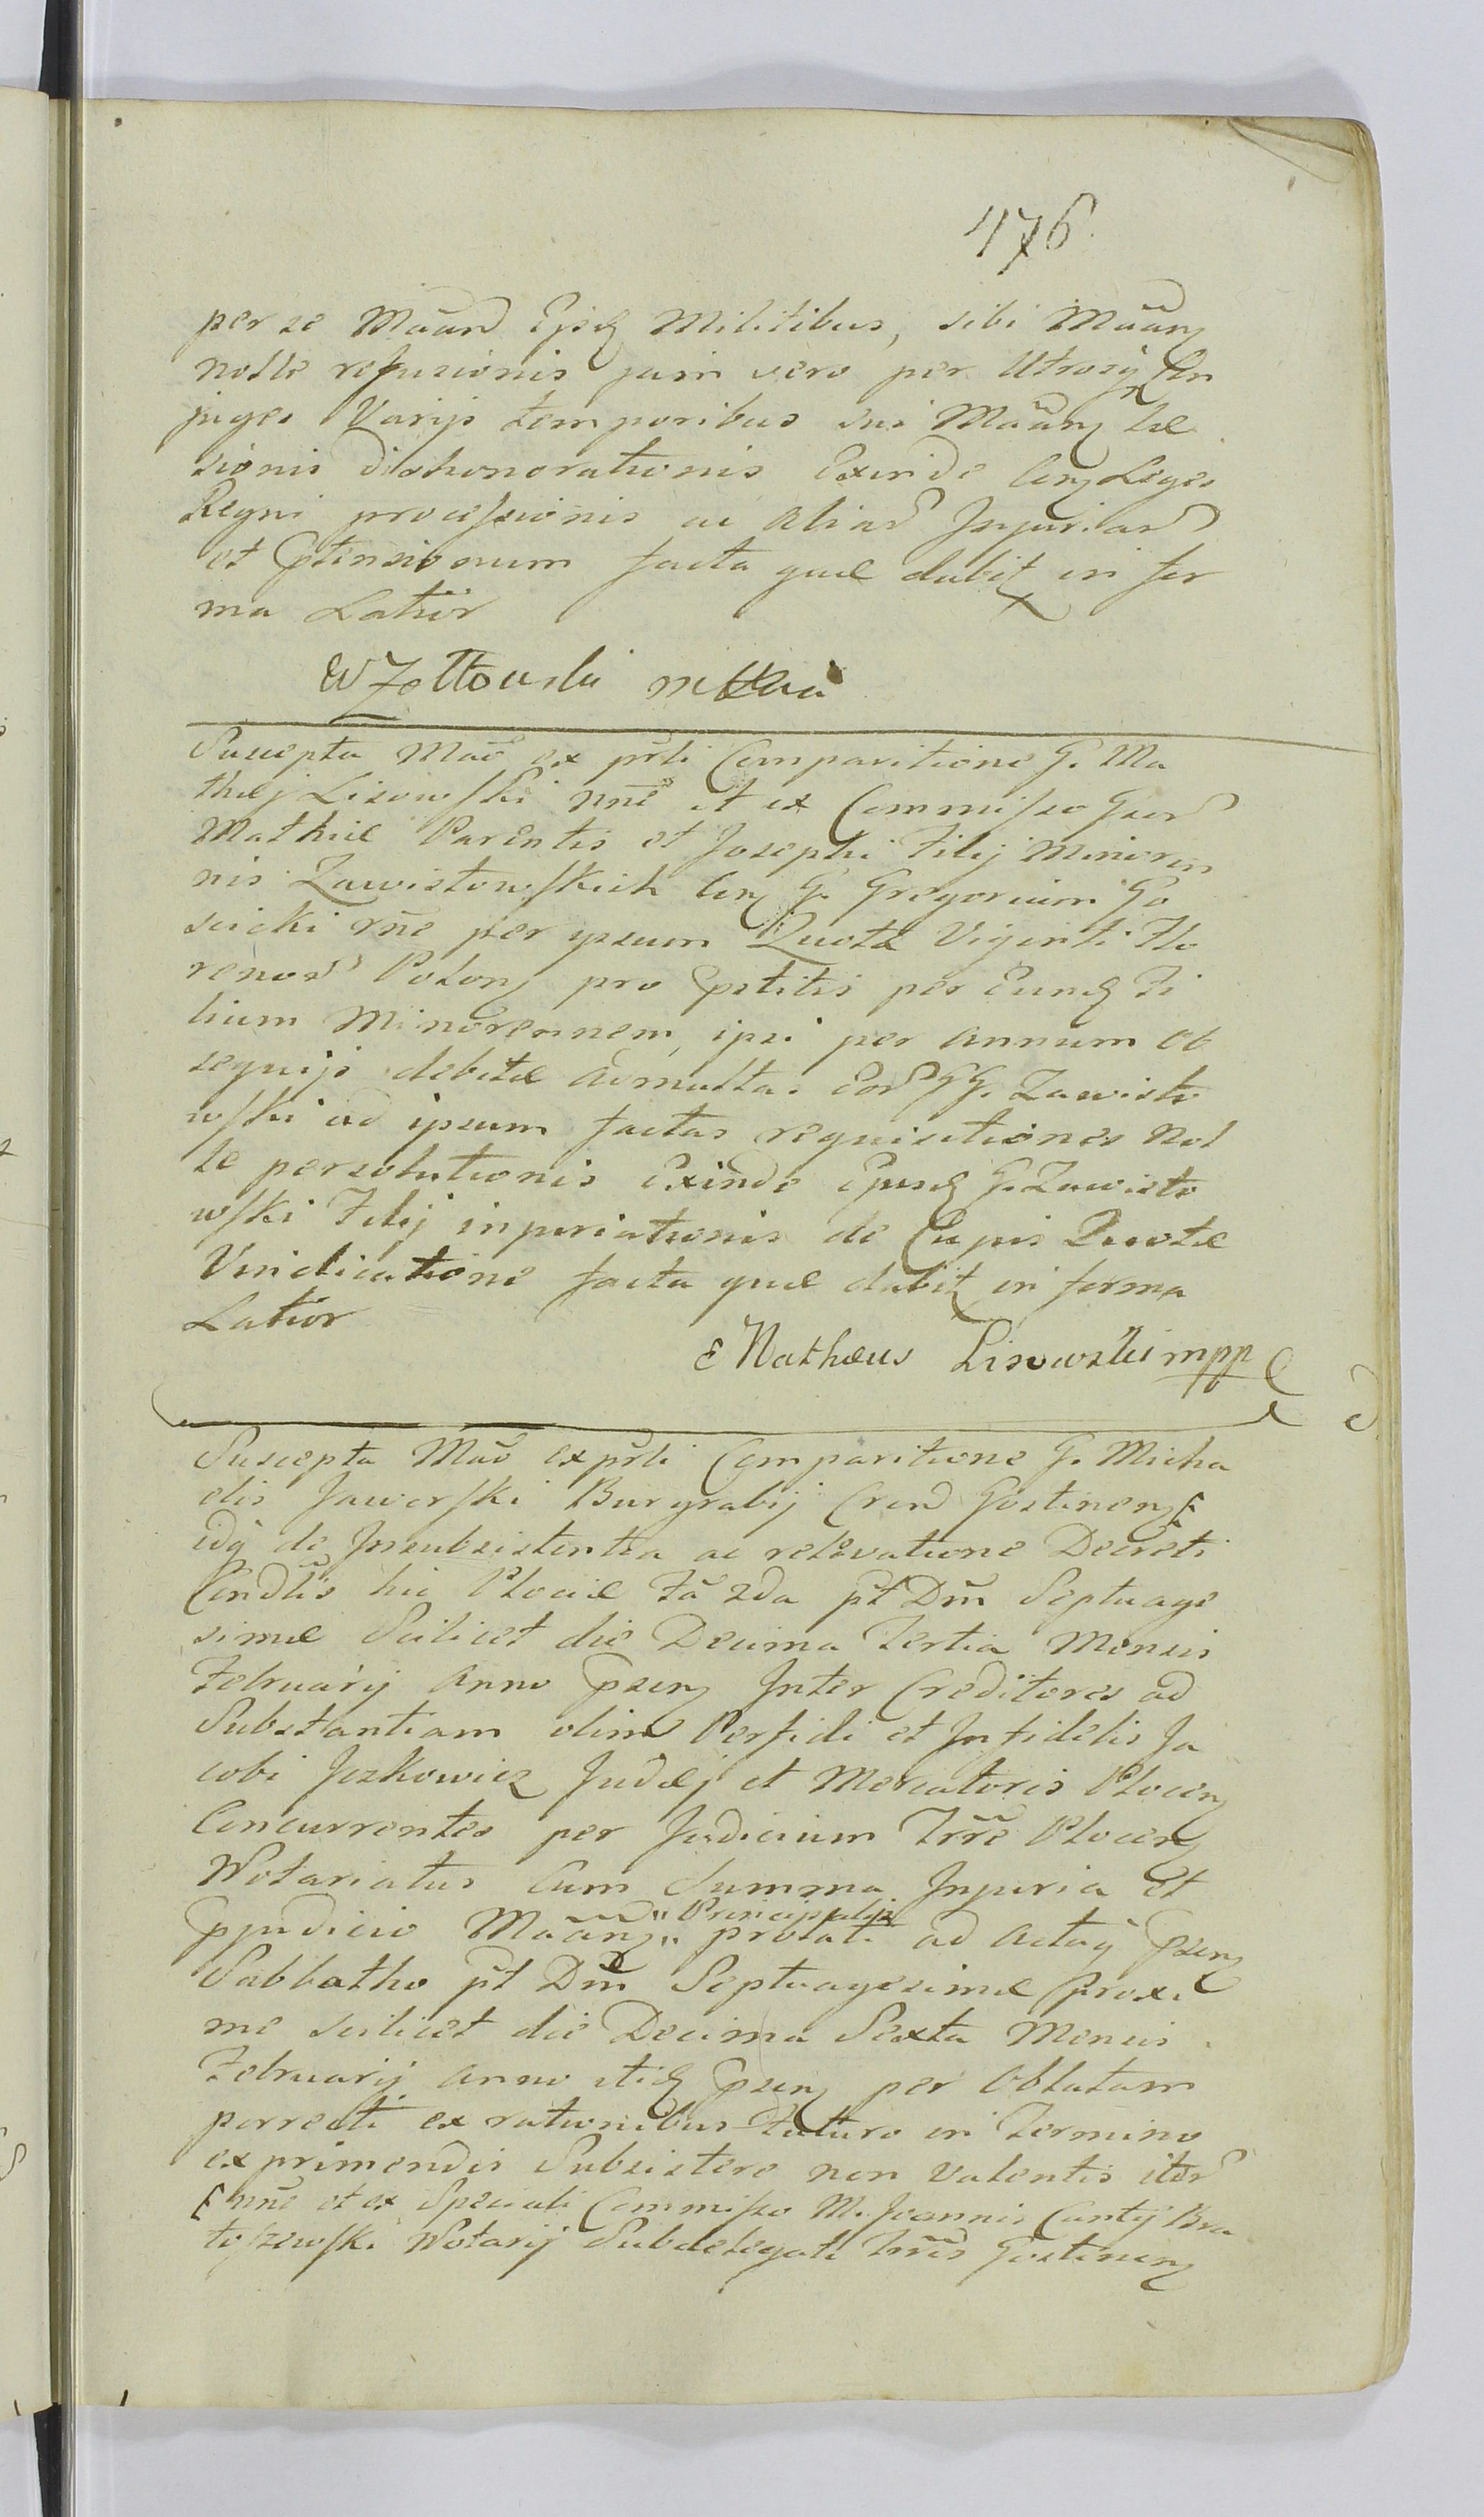 476.
per se Mãand Ejsq Militibus, sibi Mãanz
nolle refusionis jam vero per Utrosq Con
juges Varijs temporibus sui Mãanz læ
sionis dishonorationis Exinde Conz Leges
Regni processionis ac aliar Injuriar
et Ptensionum facta quæ dabit in for
ma Latior
W Zołtowski
Suscepta Mão ex pñli Comparitione G. Ma
thæj Lisowski nñe et ex Commisso Gsor
Mathiæ Parentis et Josephi Filij Minoren
nis Zawistowskich Conz G. Gregorium Go
scicki rñe per ipsum Quotæ Viginti Flo
renor Polonz pro Pstitis per Eundq Fi
lium Minorennem, ipsi per annum Ob
sequijs debitæ ad multas Eor GG. Zawisto
wski ad ipsum factas requisitiones nol
le persolutionis Exinde Ejusdq G. Zawisto
wski Filij injuriationis de Cujus Quotæ
Vindicatione facta quæ dabit in forma
Latior
Mathæus Lisowski mpp
Suscepta Mão ex pñli Comparitione G. Micha
elis Jaworski Burgrabij Crend Gostinenz
idq de Insubsistentia ac relevatione Decreti
Condlis hic Plociæ Fã 2da pt Dm̃ Septuage
simæ Scilicet die Decima Tertia Mensis
Februarij Anno Psenz Inter Creditores ad
Substantiam olim Perfidi et Infidelis Ja
cobi Jczkowicz Judæj et Mercatoris Plocenz
Concurrentes per Judicium Trr̃e Plocenz
Notariatus Cum Summa Injuria et
Pjudicio Mãanz " Principalis
" prolati ad Actaq Psenz
Sabbatho pt Dm̃ Septuagesimæ Proxi
me scilicet die Decima Sexta Mensis
Februarij anno itiq Psenz per Oblatam
porrecti ex rationibus Futuro in Termino
exprimendis Subsistere non Valentis iter
nñe et ex Speciali Commisso M. Joannis Cantij Bra
toszewski Notarij Subdelegati Trr̃is Gostinenz